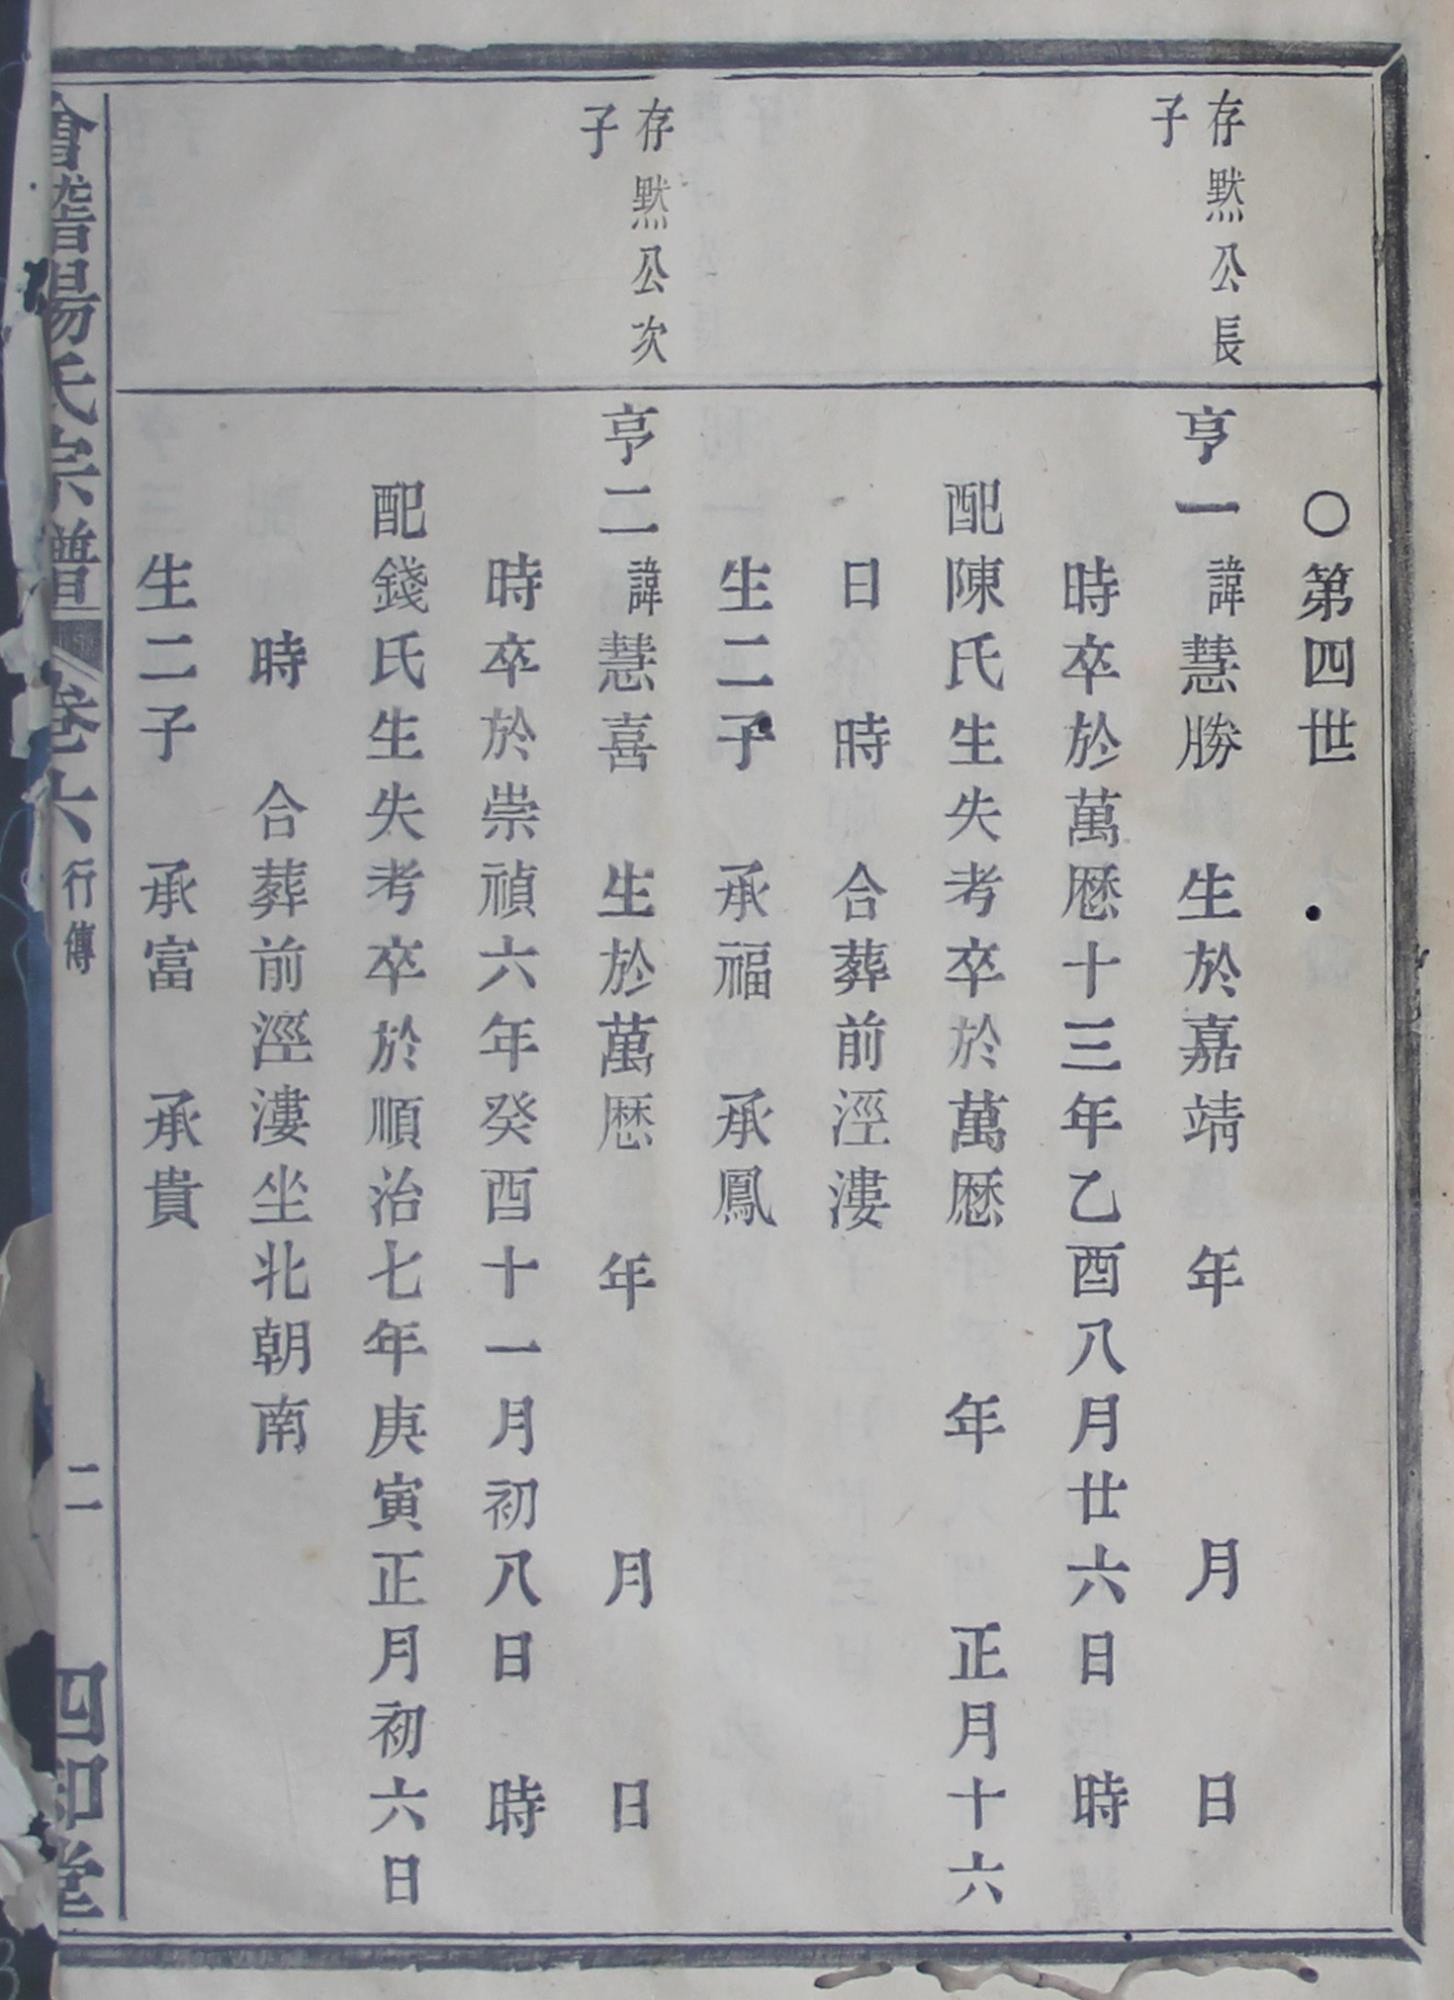 ○第四世
存默公長
子
亨一諱慧勝 生於嘉靖 年 月 日
時卒於萬曆十三年乙酉八月廿六日 時
配陳氏生失考卒於萬曆 年 正月十六
日 時 合葬前涇漊
生二子 承福 承鳳
存默公次
子
亨二諱慧喜 生於萬曆 年 月 日
時卒於崇禎六年癸酉十一月初八日 時
配錢氏生失考卒於順治七年庚寅正月初六日
時 合葬前涇漊坐北朝南
生二子 承富 承貴
會稽楊氏宗譜 卷六 行傳 二 四知堂